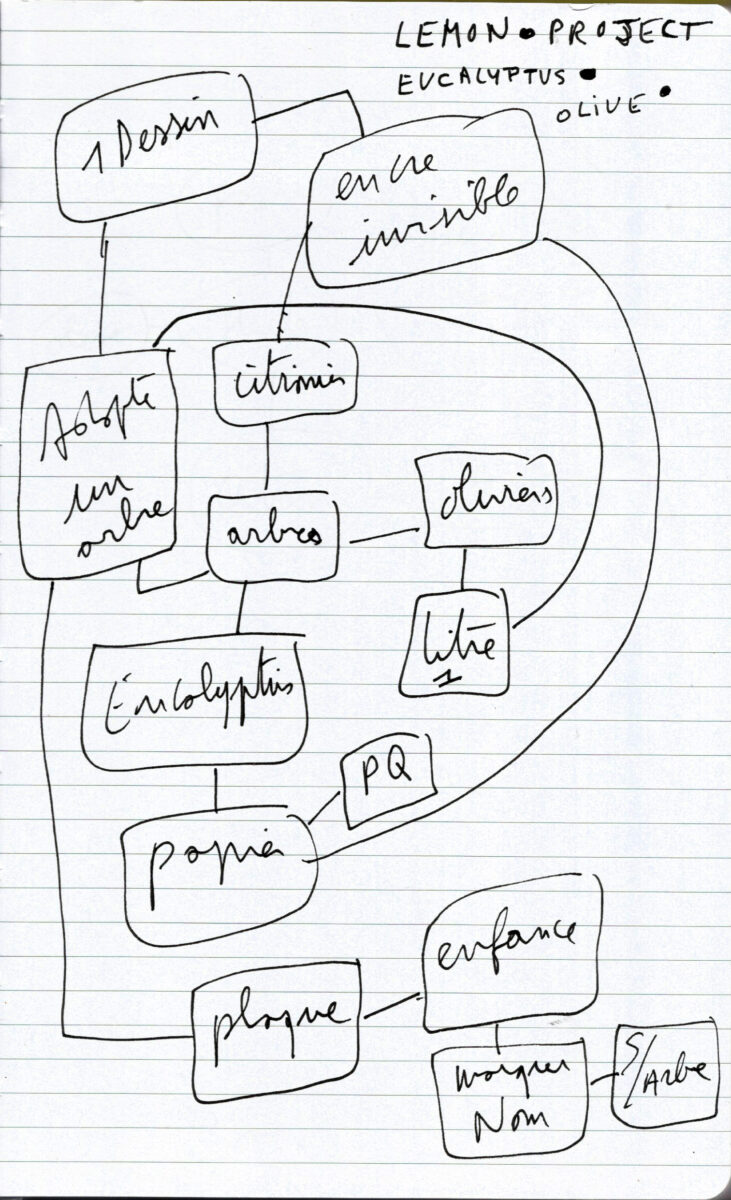 LEMON • PROJECT
EUCALYPTUS •
OLIVE •
1 Dessin
encre
invisible
Adopte
un
arbre
citronier
arbres
oliviers
litre
1
Eucalyptus
PQ
papier
enfance
plaque
marquer
Nom
S/Arbre